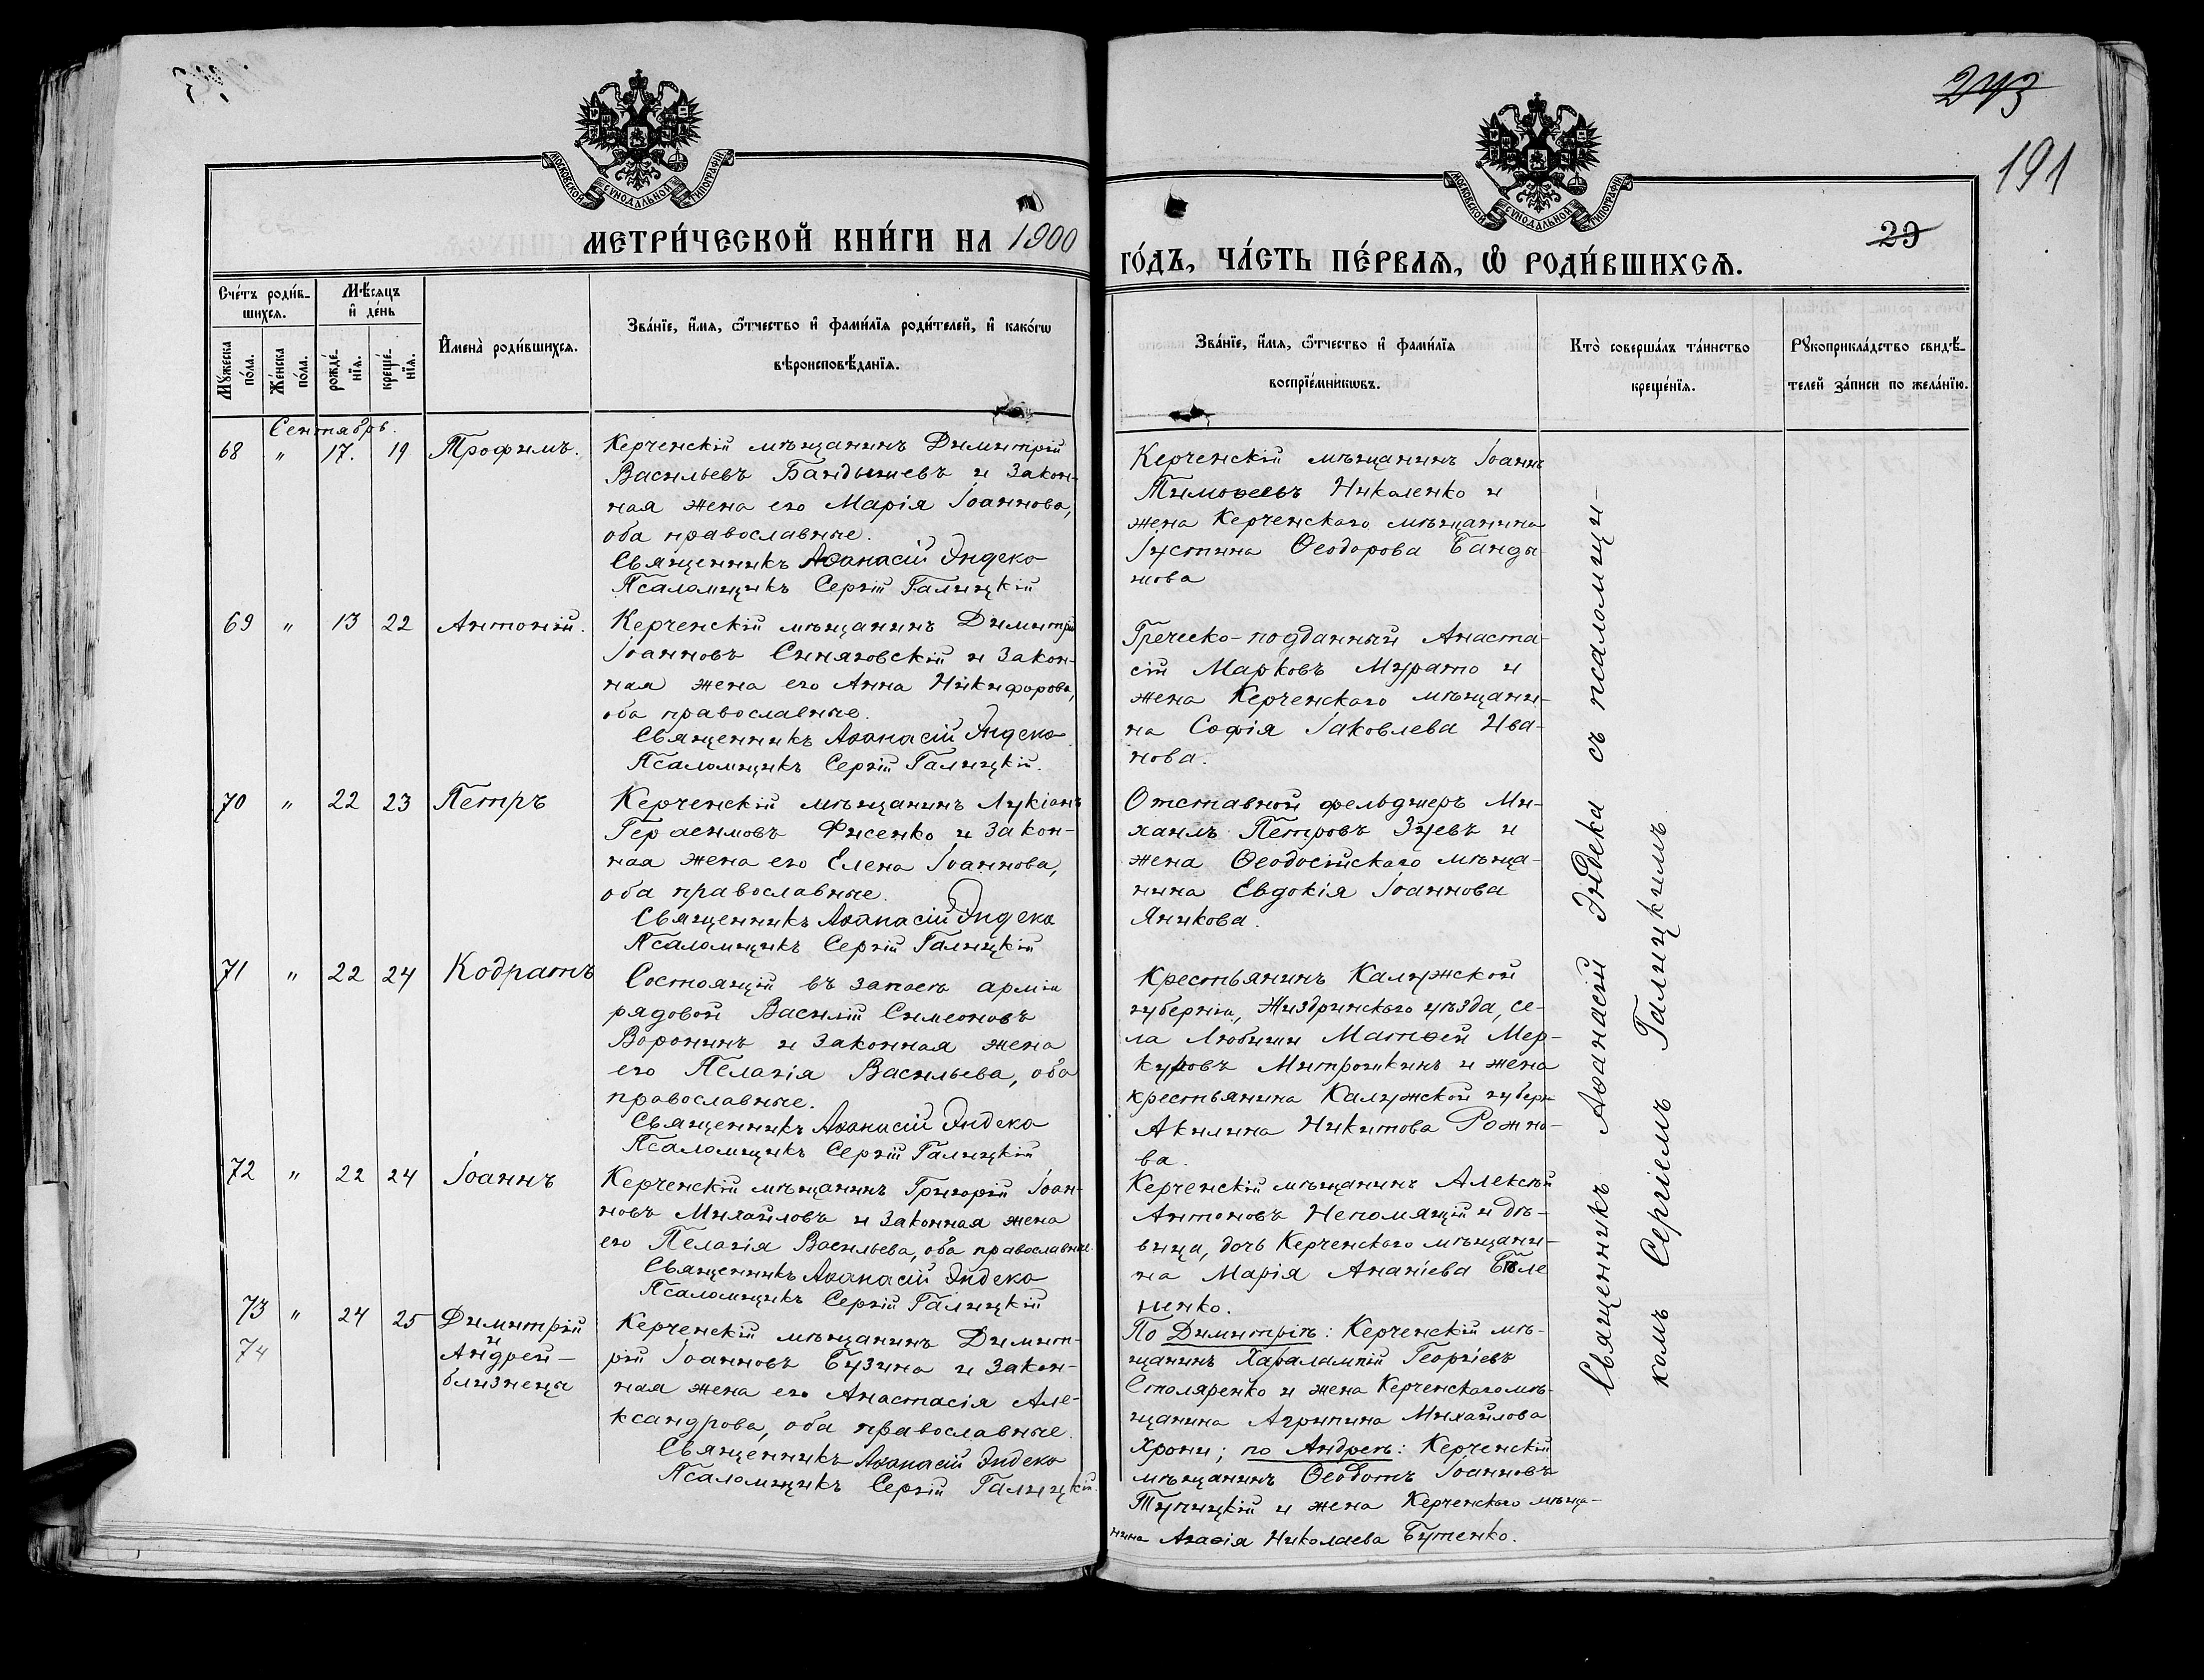 243
191
29
МОСКОВСКОЙ СѴНОДАЛЬНОЙ ТИПОГРАФІИ
МОСКОВСКОЙ СѴНОДАЛЬНОЙ ТИПОГРАФІИ
МЕТРИ́ЧЕСКОЙ КНИ́ГИ НА 1900
ГО́ДЪ, ЧА́СТЬ ПЕ́РВАѦ, Ѡ҆ РОДИ́ВШИХСѦ.
Сче́тъ роди́в-
шихсѧ.
Мѣ́сѧцъ
и҆ де́нь
Мꙋ́жеска
по́ла.
Же́нска
по́ла.
рожде́-
нїѧ.
креще́-
нїѧ.
И҆мена̀ роди́вшихсѧ.
Зва́нїе, и҆́мѧ, ѻ҆́тчество и҆ фами́лїѧ роди́телей, и҆ како́гѡ
вѣроисповѣ́данїѧ.
Зва́нїе, и҆́мѧ, ѻ҆́тчество и҆ фами́лїѧ
воспрїе́мникѡвъ.
Кто̀ соверша́лъ та́инство
креще́нїѧ.
Рꙋкоприкла́дство свидѣ́-
телей за́писи по жела́нїю.
Сентябрь.
68 " 17. 19 Трофимъ.
Керченскій мѣщанинъ Димитрій
Васильевъ Бандышевъ и закон-
ная жена его Марія Іоаннова,
оба православные.
Священникъ Аѳанасій Эндека
Псаломщикъ Сергій Галицкій
Керченскій мѣщанинъ Іоаннъ
Тимоѳеевъ Николенко и
жена Керченскаго мѣщанина
Іустина Ѳеодорова Банды
шова
69 " 13 22 Антоній.
Керченскій мѣщанинъ Димитрій
Іоанновъ Синяговскій и закон-
ная жена его Анна Никифорова,
оба православные.
Священникъ Аѳанасій Эндека
Псаломщикъ Сергій Галицкій.
Греческо-подданный Анаста-
сій Марковъ Мурато и
жена Керченскаго мѣщани-
на Софія Іаковлева Ива-
нова.
70 " 22 23 Петръ
Керченскій мѣщанинъ Лукіанъ
Герасимовъ Фисенко и закон-
ная жена его Елена Іоаннова,
оба православные.
Священникъ Аѳанасій Эндека
Псаломщикъ Сергій Галицкій
Отставной фельдшеръ Ми-
хаилъ Петровъ Зуевъ и
жена Ѳеодосійскаго мѣща-
нина Евдокія Іоаннова
Яникова.
71 " 22 24 Кодратъ
Состоящій въ запасѣ арміи
рядовой Василій Симеоновъ
Воронинъ и законная жена
его Пелагія Васильева, оба
православные.
Священникъ Аѳанасій Эндека
Псаломщикъ Сергій Галицкій
Крестьянинъ Калужской
губерніи, Жиздринскаго уѣзда, се-
ла Любыши Матѳей Мер-
куровъ Митрошкинъ и жена
крестьянина Калужской губерн
Акилина Никитова Рожно-
ва.
72 " 22 24 Іоаннъ
Керченскій мѣщанинъ Григорій Іоан-
новъ Михайловъ и законная жена
его Пелагія Васильева, оба православные.
Священникъ Аѳанасій Эндека
Псаломщикъ Сергій Галицкій
Керченскій мѣщанинъ Алексѣй
Антоновъ Непомящій и дѣ-
вица, дочь Керченскаго мѣщани-
на Марія Ананіева Бѣле
ненко.
73 " 24 25 Димитрій
и
74 Андрей-
близнецы
Керченскій мѣщанинъ Димит-
рій Іоанновъ Бузина и закон-
ная жена его Анастасія Але-
ксандрова, оба православные.
Священникъ Аѳанасій Эндека
Псаломщикъ Сергій Галицкій.
По Димитріѣ: Керченскій мѣ-
щанинъ Харалампій Георгіевъ
Столяренко и жена Керченскаго мѣ-
щанина Агрипина Михайлова
Хрони; по Андреѣ: Керченскій
мѣщанинъ Ѳеодотъ Іоанновъ
Тупицкій и жена Керченскаго мѣща-
нина Агаѳія Николаева Бутенко.
Священникъ Аѳанасій Эндека съ псаломщи-
комъ Сергіемъ Галицкимъ